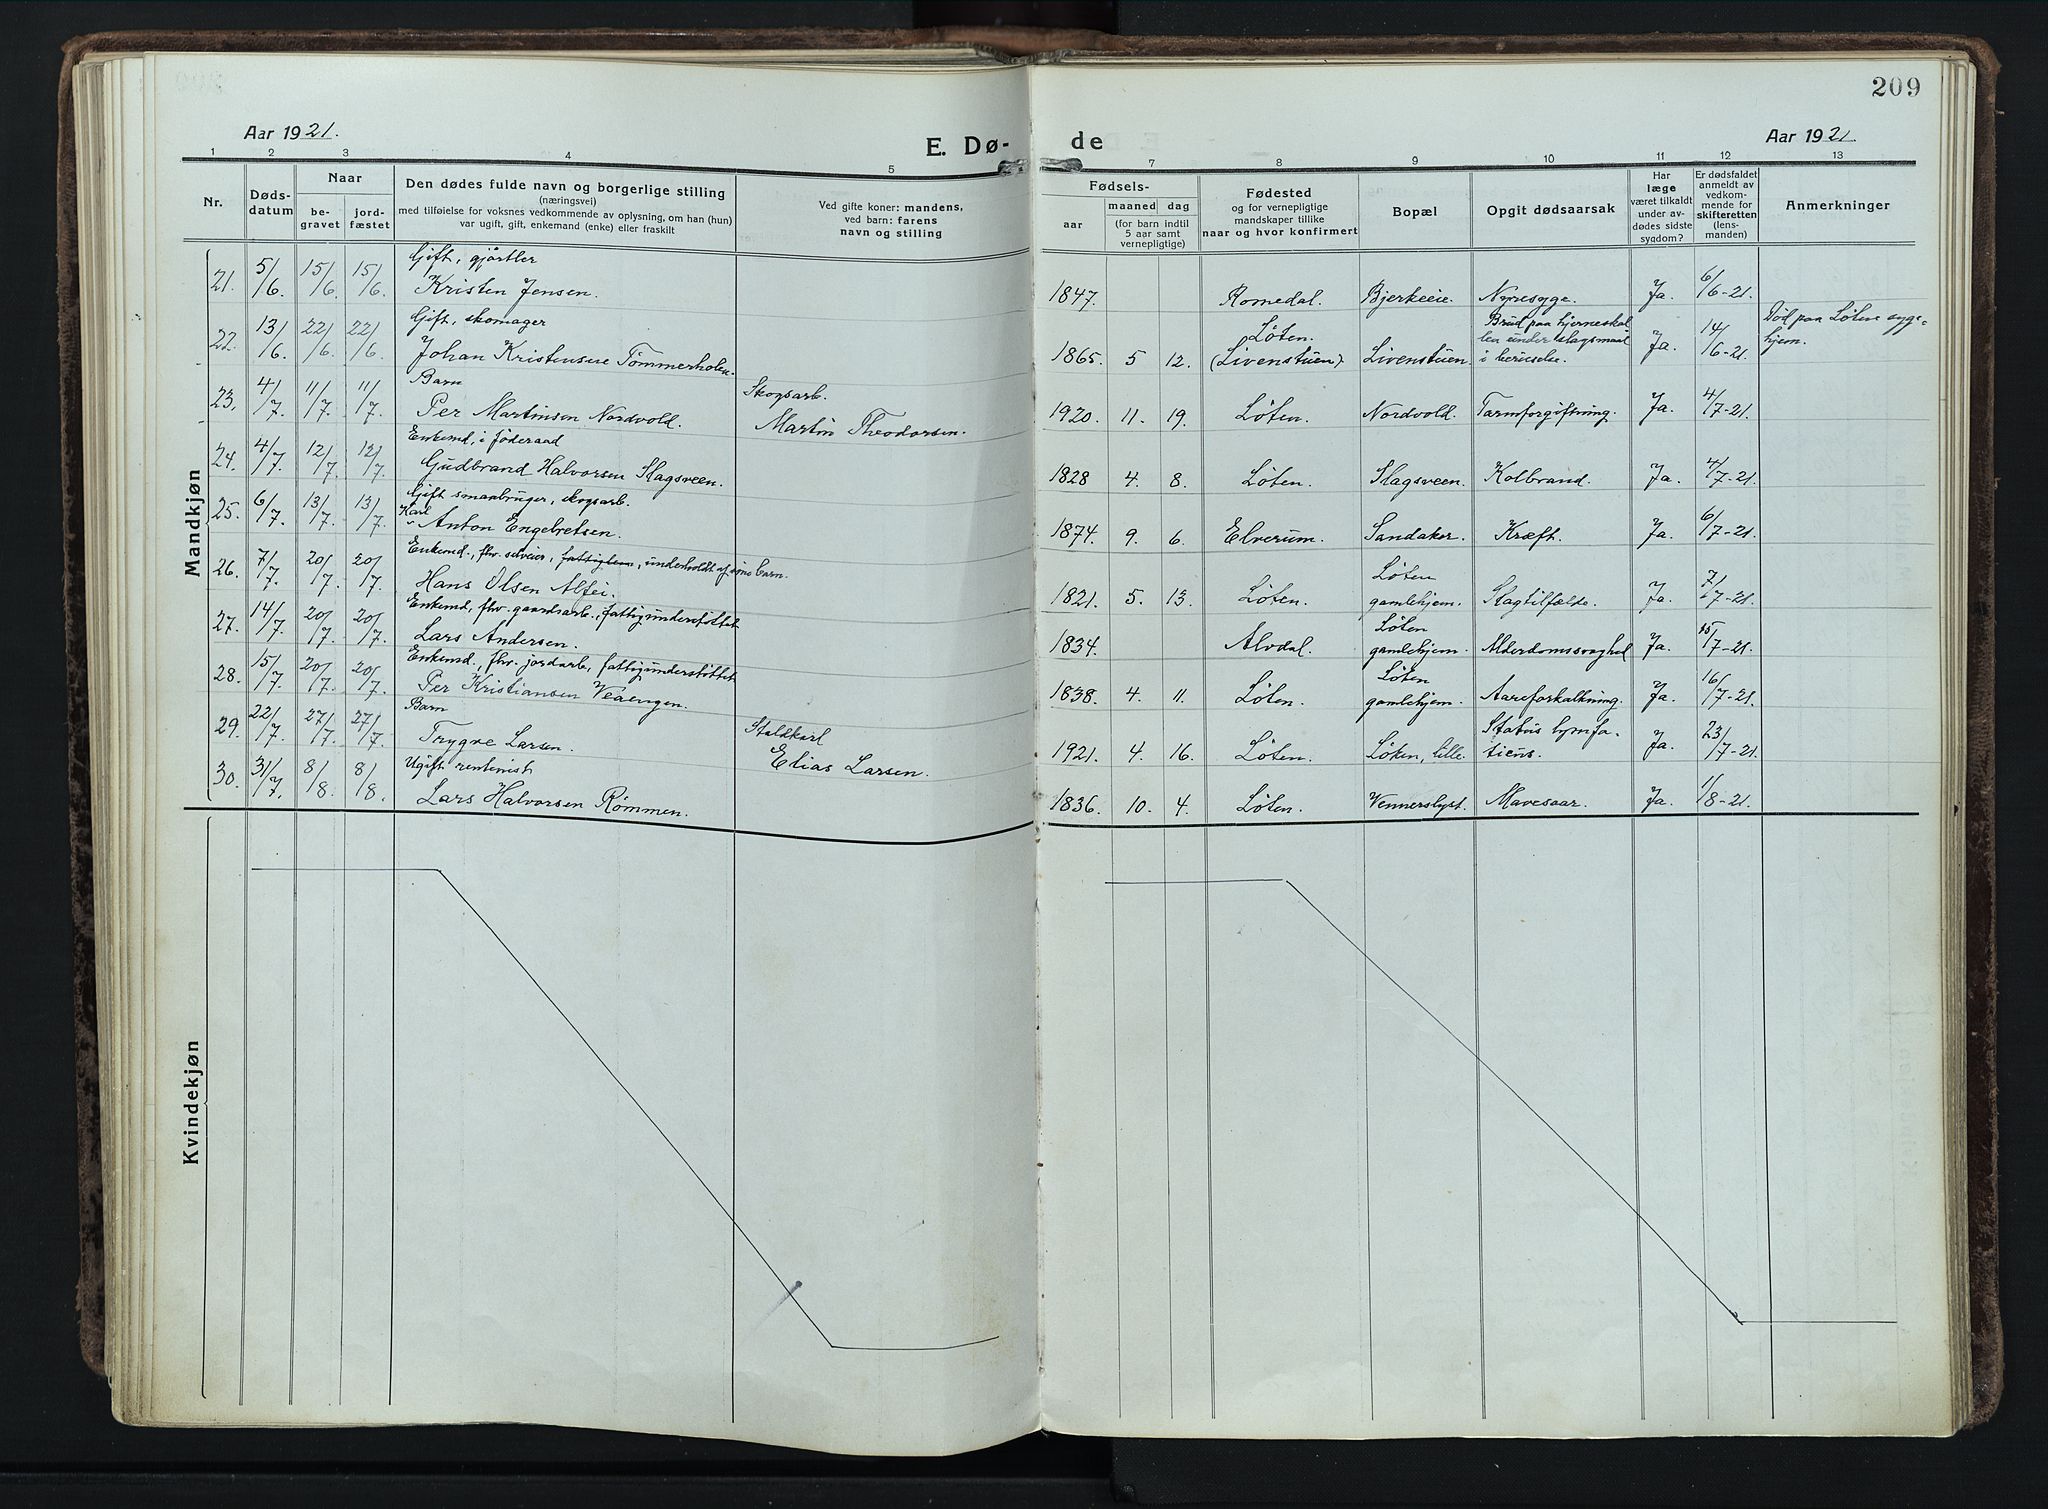 209
Aar 1921.
E. Dø-
de
Aar 1921.
1 2 3 4 5 7 8 9 10 11 12 13
Nr.
Døds-
datum
Naar
be-
gravet
jord-
fæstet
Den dødes fulde navn og borgerlige stilling
(næringsvei)
med tilføielse for voksnes vedkommende av oplysning, om han (hun)
var ugift, gift, enkemand (enke) eller fraskilt
Ved gifte koner: mandens,
ved barn: farens
navn og stilling
Fødsels-
aar
maaned dag
(for barn indtil
5 aar samt
vernepligtige)
Fødested
og for vernepligtige
mandskaper tillike
naar og hvor konfirmert
Bopæl
Opgit dødsaarsak
Har
læge
været tilkaldt
under av-
dødes sidste
sygdom?
Er dødsfaldet
anmeldt av
vedkom-
mende for
skifteretten
(lens-
manden)
Anmerkninger
Mandkjøn
Gift, gjørtler
21. 5/6. 15/6 15/6 Kristen Jensen. 1847. Romedal. Bjerkeeie. Nyresyge. Ja. 6/6-21.
Gift, skomager
22. 13/6. 22/6 22/6 Johan Kristensen Tømmerholen. 1865. 5 12. Løten. (Livenstuen) Livenstuen. Brud paa hjerneskal
len under slagsmaal
i beruselse. Ja. 14/6-21. Død paa Løten syge-
hjem.
Barn
23. 4/7. 11/7. 11/7. Per Martinsen Nordvold. Skogsarb.
Martin Theodorsen. 1920. 11. 19. Løten. Nordvold. Tarmforgiftning. Ja. 4/7-21.
Enkemd, i føderaad
24. 4/7. 12/7. 12/7. Gudbrand Halvorsen Slagsveen. 1828 4. 8. Løten. Slagsveen. Kolbrand. Ja. 4/7-21.
Gift smaabruger, skogsarb.
25. 6/7. 13/7. 13/7. Karl Anton Engebretsen. 1874. 9. 6. Elverum. Sandaker. Kræft. Ja. 6/7-21.
Enkemd., fhv. selveier, fattiglem, underholdt af sine barn.
26. 7/7. 20/7. 20/7. Hans Olsen Alfei. 1821. 5. 13. Løten. Løten
gamlehjem. Slagtilfælde. Ja. 7/7-21.
Enkemd, fhv. gaardsarb., fattigunderstøttet
27. 14/7. 20/7. 20/7. Lars Andersen. 1834. Alvdal. Løten
gamlehjem. Alderdomssvaghed Ja. 15/7-21.
Enkemd., fhv. jordarb., fattigunderstøttet
28. 15/7. 20/7. 20/7. Per Kristiansen Veaengen. 1838. 4. 11. Løten. Løten
gamlehjem. Aareforkalkning. Ja. 16/7-21.
Barn
29. 22/7. 27/7. 27/7. Trygve Larsen. Staldkarl
Elias Larsen. 1921. 4. 16. Løten. Løken, lille. Status lymfa-
ticus. Ja. 23/7-21.
Ugift rentenist
30. 31/7. 8/8. 8/8. Lars Halvorsen Rømmen. 1836. 10. 4. Løten. Vennerslyst. Mavesaar. Ja. 1/8-21.
Kvindekjøn